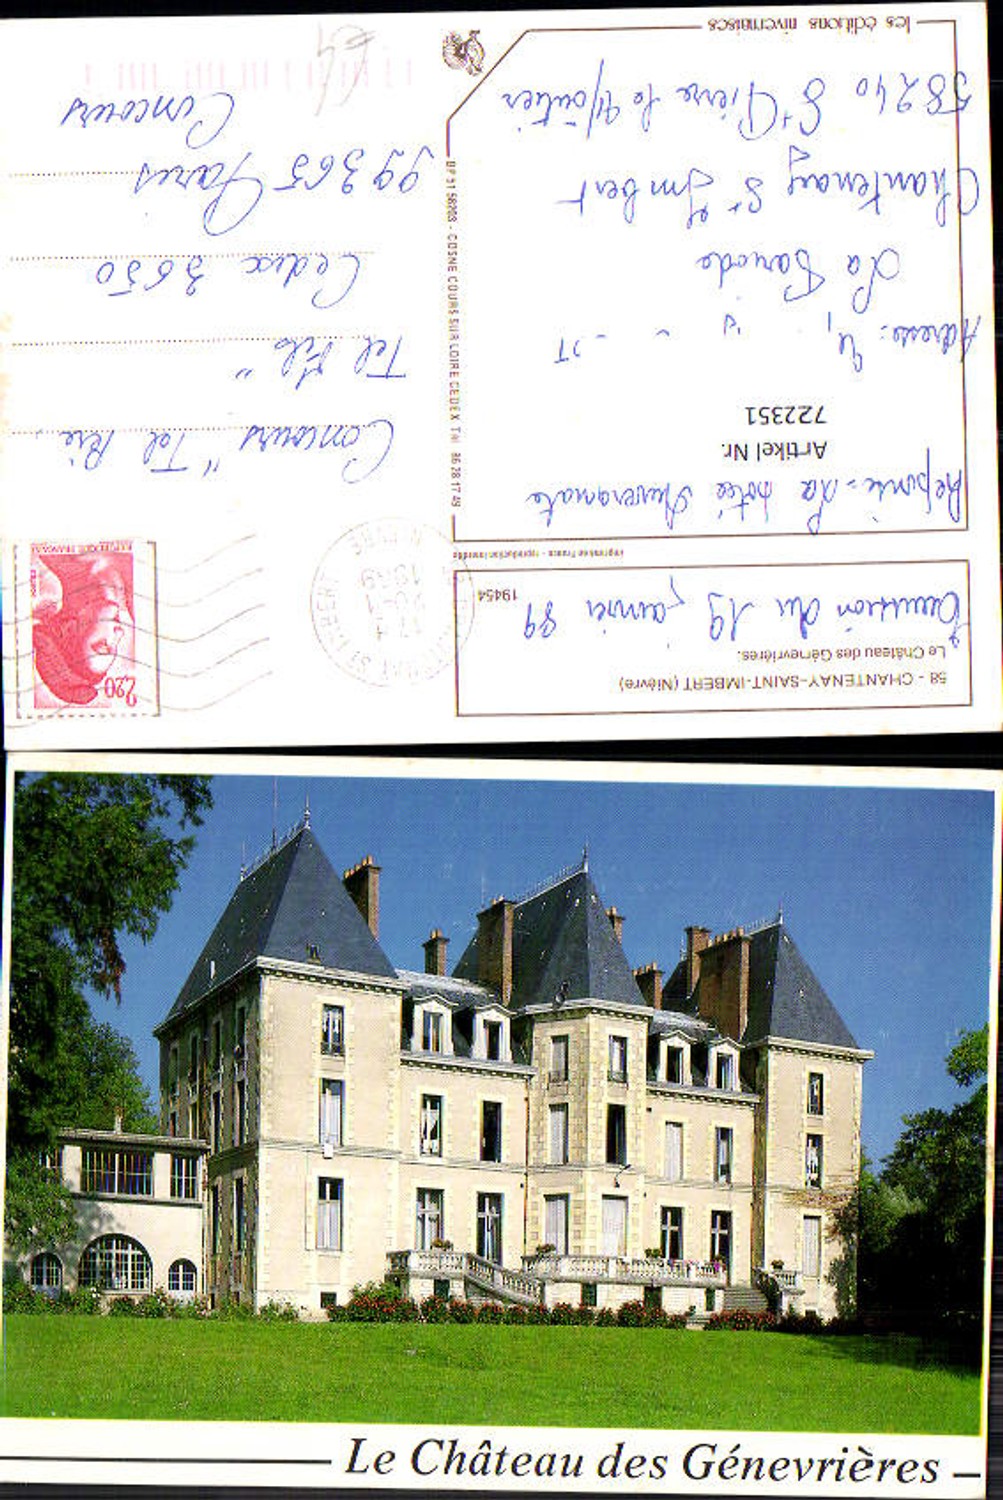 58 - CHANTENAY-SAINT-IMBERT (Nièvre)
Le Château des Génevrières.
Emission du 19 janvier 89
19454
imprimé en France - reproduction interdite
Réponse: La potée Auvergnate
Artikel Nr.
722351
Adresse:
La Barode
Chantenay St Imbert
58240 St Pierre le Moûtier
les éditions nivernaises
BP 91 58203 - COSNE COURS SUR LOIRE CEDEX Tél. 86 28 17 49
2,20
REPUBLIQUE FRANÇAISE
17 H
20-1
1989
NIEVRE
Concours "Tel Père,
Tel Fils"
Cedex 3650
99365 Paris
Concours
Le Château des Génevrières